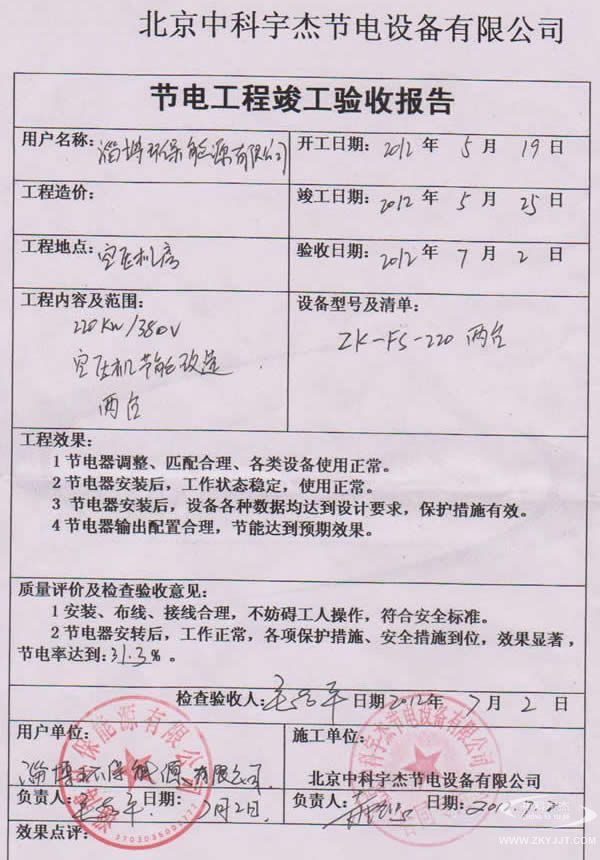 北京中科宇杰节电设备有限公司
节电工程竣工验收报告
用户名称：淄博环保能源有限公司 开工日期：2012 年 5 月 19 日
工程造价： 竣工日期：2012 年 5 月 25 日
工程地点：空压机房 验收日期：2012 年 7 月 2 日
工程内容及范围： 设备型号及清单：
220KW/380V ZK-FS-220 两台
空压机节能改造
两台
工程效果：
1 节电器调整、匹配合理、各类设备使用正常。
2 节电器安装后，工作状态稳定，使用正常。
3 节电器安装后，设备各种数据均达到设计要求，保护措施有效。
4 节电器输出配置合理，节能达到预期效果。
质量评价及检查验收意见：
1 安装、布线、接线合理，不妨碍工人操作，符合安全标准。
2 节电器安转后，工作正常，各项保护措施、安全措施到位，效果显著，
节电率达到：31.3%。
检查验收人： 日期 2012年 7 月 2 日
用户单位： 施工单位：
淄博环保能源有限公司 北京中科宇杰节电设备有限公司
负责人： 日期： 7月2日 负责人： 日期：
效果点评：
WWW.ZKYJJT.COM